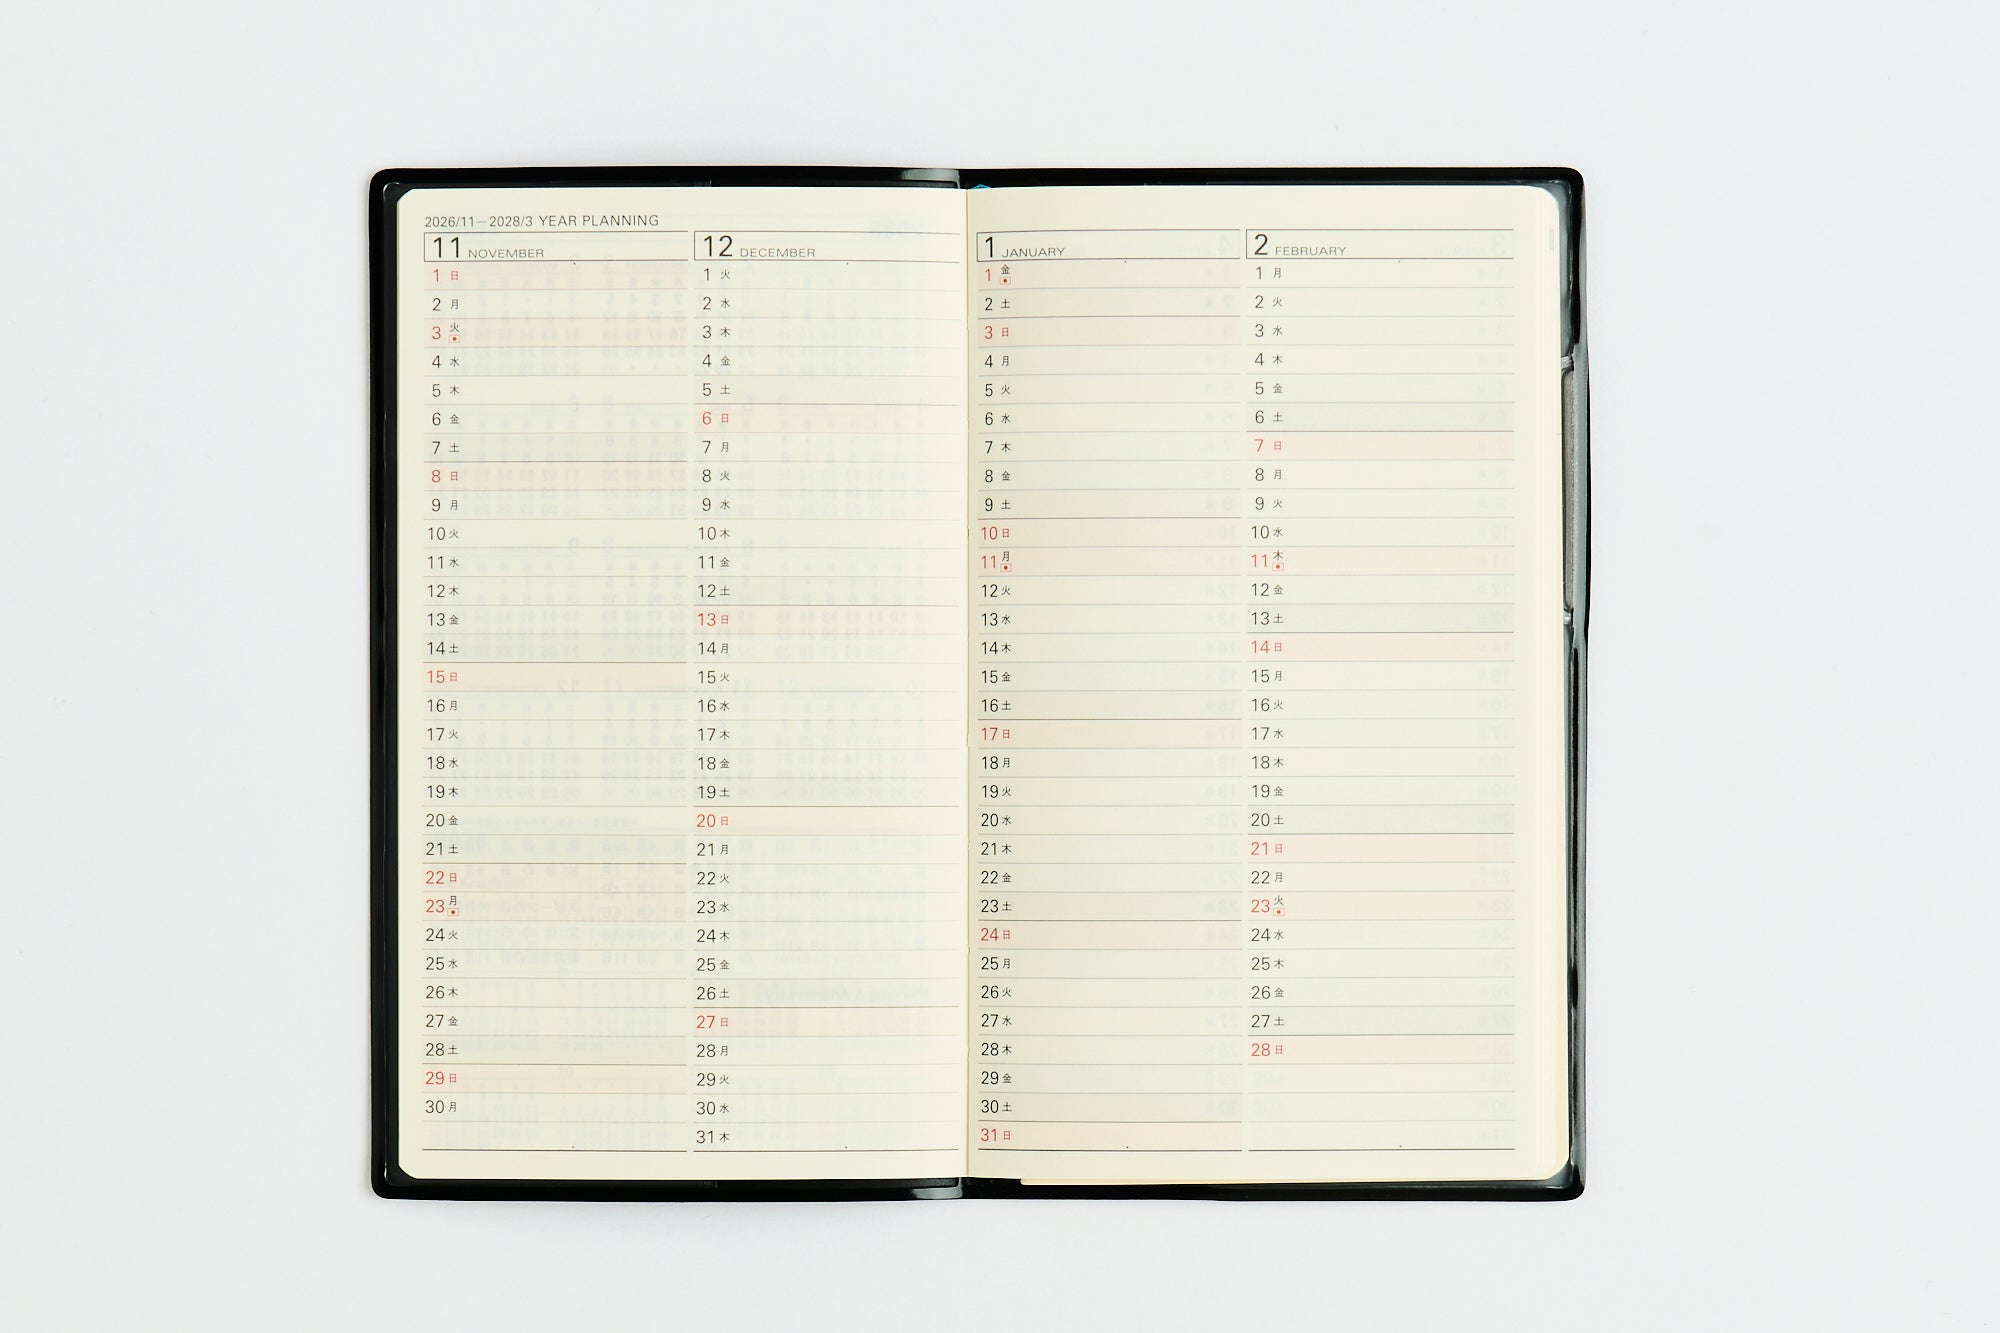 2026/11—2028/3 YEAR PLANNING
11 NOVEMBER
1 日
2 月
3 火
4 水
5 木
6 金
7 土
8 日
9 月
10 火
11 水
12 木
13 金
14 土
15 日
16 月
17 火
18 水
19 木
20 金
21 土
22 日
23 月
24 火
25 水
26 木
27 金
28 土
29 日
30 月
12 DECEMBER
1 火
2 水
3 木
4 金
5 土
6 日
7 月
8 火
9 水
10 木
11 金
12 土
13 日
14 月
15 火
16 水
17 木
18 金
19 土
20 日
21 月
22 火
23 水
24 木
25 金
26 土
27 日
28 月
29 火
30 水
31 木
1 JANUARY
1 金
2 土
3 日
4 月
5 火
6 水
7 木
8 金
9 土
10 日
11 月
12 火
13 水
14 木
15 金
16 土
17 日
18 月
19 火
20 水
21 木
22 金
23 土
24 日
25 月
26 火
27 水
28 木
29 金
30 土
31 日
2 FEBRUARY
1 月
2 火
3 水
4 木
5 金
6 土
7 日
8 月
9 火
10 水
11 木
12 金
13 土
14 日
15 月
16 火
17 水
18 木
19 金
20 土
21 日
22 月
23 火
24 水
25 木
26 金
27 土
28 日